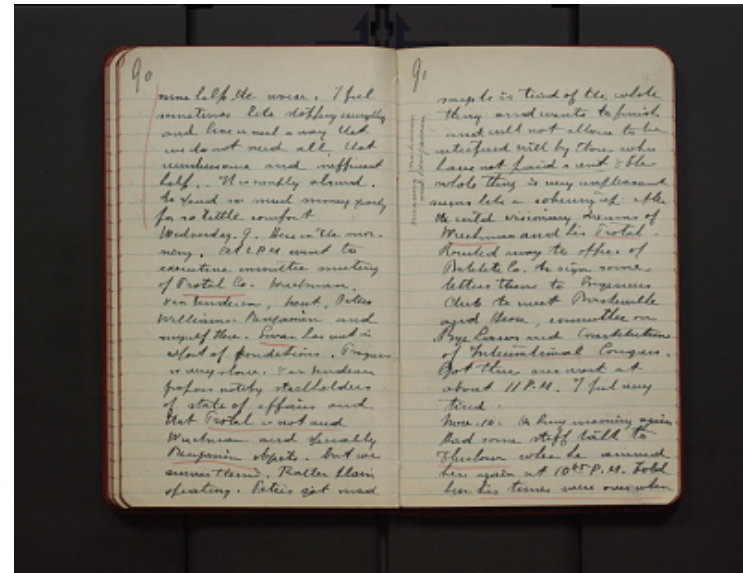 90
more help the worse. I feel
sometimes like stopping everything
and live in such a way that
we do not need all that
cumbersome and inefficient
help. It is simply absurd
to spend so much money yearly
for so little comfort
Wednesday. 9. Here in the mor-
ning. At 2 P.M. went to
executive committee meeting
of Protal Co. Wiechmann,
Hunt, Peters
Williams. Benjamin and
myself there. Swan has put in
a lot of
is very slow.
propose notify stockholders
of state of affairs and
that Protal is not and
Wiechmann and specially
Benjamin objects. but we
plain
speaking. Peters got mad
91
says he is tired of the whole
thing and wants to finish
and will not allow to be
interfered with by those who
have not paid a cent. The
whole thing is very unpleasant
seems like a sobering up after
the wild visionary dreams of
Wiechmann and his Protal.
Rushed away to office of
Bakelite Co. to sign some
letters then to Engineers
Club to meet Baskerville
and Hesse, committee on
Bye Laws and Constitution
of International Congress.
Got thru our work at
about 11 P.M. I feel very
tired.
Nov. 10. A busy morning again
Had some stiff talk to
Thurlow when he arrived
here again at 10 P.M. told
him his times were over when
meaning Wiechmann
and Benjamin